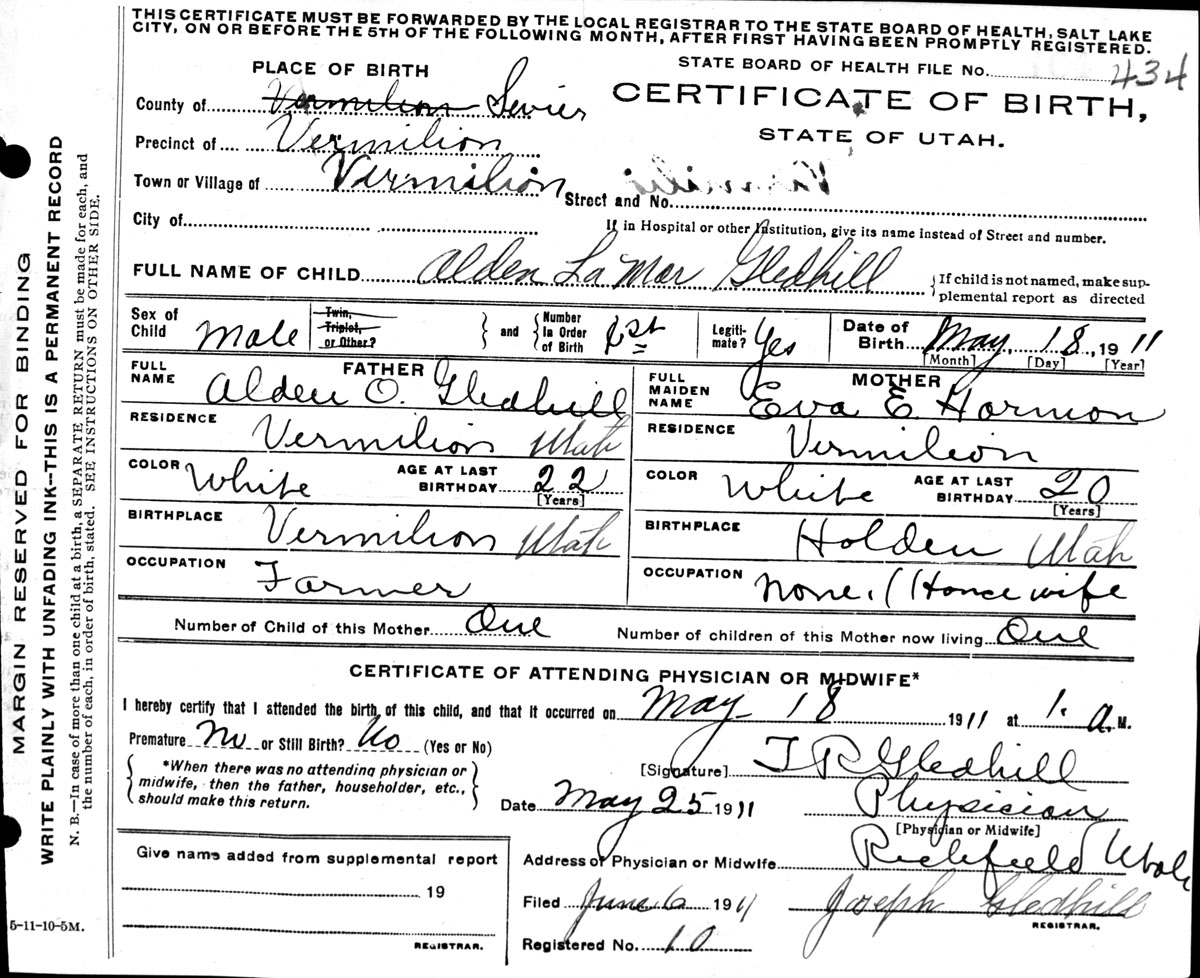 THIS CERTIFICATE MUST BE FORWARDED BY THE LOCAL REGISTRAR TO THE STATE BOARD OF HEALTH, SALT LAKE
CITY, ON OR BEFORE THE 5TH OF THE FOLLOWING MONTH, AFTER FIRST HAVING BEEN PROMPTLY REGISTERED.
MARGIN RESERVED FOR BINDING
WRITE PLAINLY WITH UNFADING INK—THIS IS A PERMANENT RECORD
N. B.—In case of more than one child at a birth, a SEPARATE RETURN must be made for each, and
the number of each, in order of birth, stated. SEE INSTRUCTIONS ON OTHER SIDE.
PLACE OF BIRTH
STATE BOARD OF HEALTH FILE No. 434
County of Vermilion Sevier
CERTIFICATE OF BIRTH,
STATE OF UTAH.
Precinct of Vermilion
Town or Village of Vermilion Street and No.
City of
If in Hospital or other Institution, give its name instead of Street and number.
FULL NAME OF CHILD Alden La Mar Gledhill {If child is not named, make sup-
plemental report as directed
Sex of Child Male
Twin, Triplet, or Other?
and
Number In Order of Birth 1st
Legiti-mate? Yes
Date of Birth May 18, 1911
[Month] [Day] [Year]
FATHER
FULL NAME Alden O. Gledhill
MOTHER
FULL MAIDEN NAME Eva E. Harmon
RESIDENCE Vermilion Utah
RESIDENCE Vermilion
COLOR White AGE AT LAST BIRTHDAY 22 [Years]
COLOR White AGE AT LAST BIRTHDAY 20 [Years]
BIRTHPLACE Vermilion Utah
BIRTHPLACE Holden Utah
OCCUPATION Farmer
OCCUPATION None. (House wife
Number of Child of this Mother One Number of children of this Mother now living One
CERTIFICATE OF ATTENDING PHYSICIAN OR MIDWIFE*
I hereby certify that I attended the birth of this child, and that it occurred on May 18 1911 at 1. a M.
Premature No or Still Birth? No (Yes or No)
*When there was no attending physician or
midwife, then the father, householder, etc.,
should make this return.
[Signature] T R Gledhill
Date May 25 1911 Physician
[Physician or Midwife]
Give name added from supplemental report
19
REGISTRAR.
Address of Physician or Midwife Richfield Utah
Filed June 6 1911 Joseph Gledhill
REGISTRAR.
Registered No. 10
5-11-10-5M.